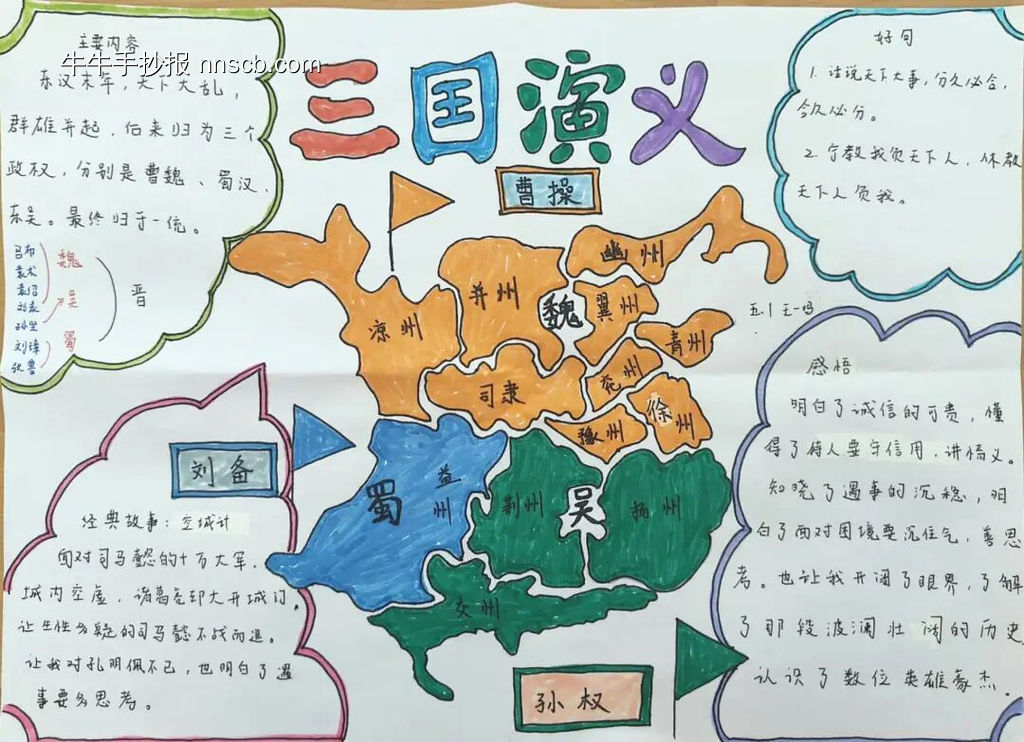 三国演义
牛牛手抄报 nnscb.com
主要内容
东汉末年，天下大乱，
群雄并起，后来归为三个
政权，分别是曹魏、蜀汉、
东吴。最终归于一统。
吕布
袁术
袁绍
刘表
孙坚
刘璋
张鲁
魏
吴
蜀
晋
好句
1. 话说天下大事，分久必合，
合久必分。
2. 宁教我负天下人，休教
天下人负我。
五.1 王一鸣
曹操
幽州
并州
魏
冀州
凉州
青州
司隶
兖州
徐州
豫州
蜀
益州
荆州
吴
扬州
交州
刘备
孙权
经典故事：空城计
面对司马懿的十万大军，
城内空虚，诸葛亮却大开城门。
让生性多疑的司马懿不战而退。
让我对孔明佩服不已，也明白了遇
事要多思考。
感悟
明白了诚信的可贵，懂
得了待人要守信用，讲情义。
知晓了遇事的沉稳，明
白了面对困境要沉住气，善思
考。也让我开阔了眼界，了解
了那段波澜壮阔的历史
认识了数位英雄豪杰.